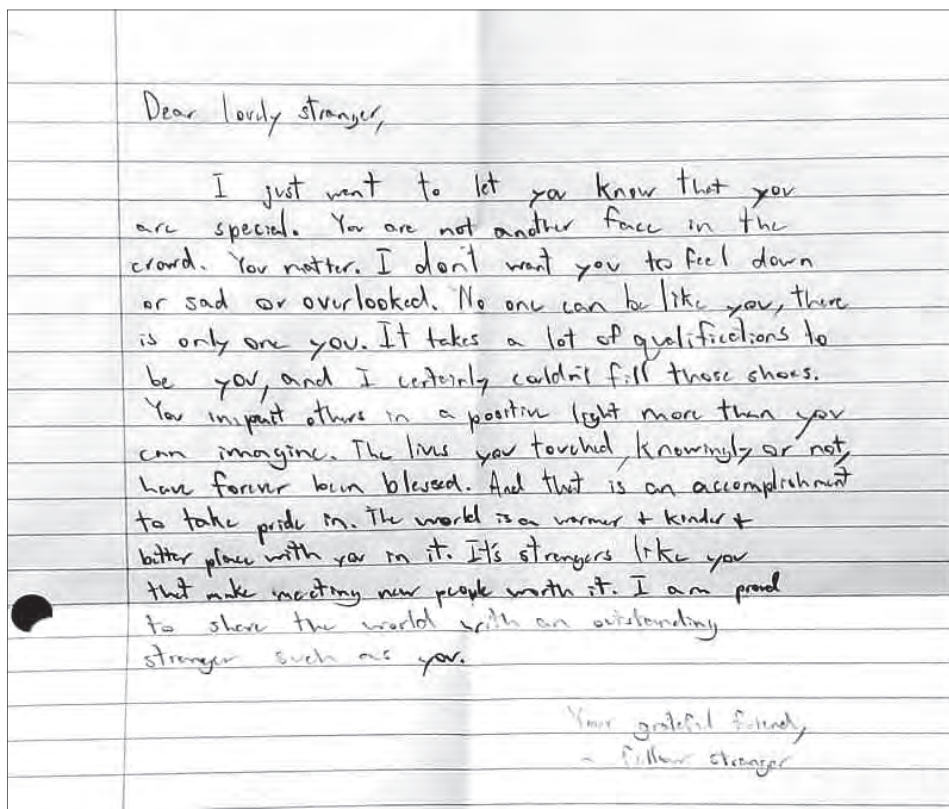 Dear lovely stranger,
I just want to let you know that you
are special. You are not another face in the
crowd. You matter. I don't want you to feel down
or sad or overlooked. No one can be like you, there
is only one you. It takes a lot of qualifications to
be you, and I certainly couldn't fill those shoes.
You impact others in a positive light more than you
can imagine. The lives you touched, knowingly or not,
have forever been blessed. And that is an accomplishment
to take pride in. The world is a warmer + kinder +
better place with you in it. It's strangers like you
that make meeting new people worth it. I am proud
to share the world with an outstanding
stranger such as you.
Your grateful friend,
a fellow stranger